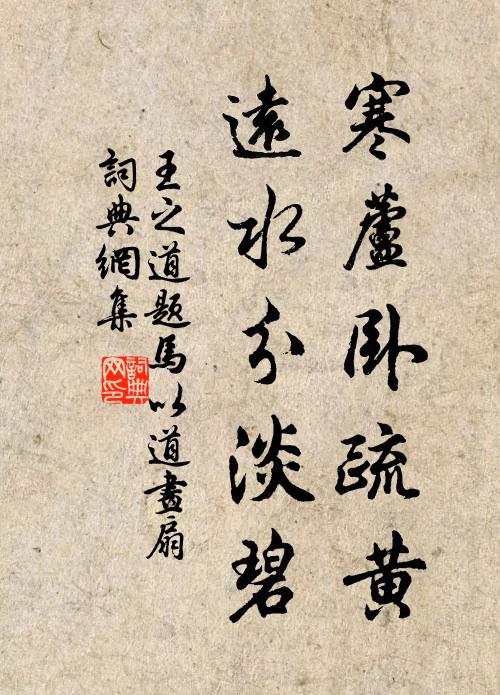 寒蘆卧疏黄
遠水分淡碧
王之道題馬以道畫扇
詞典網集
詞典網印